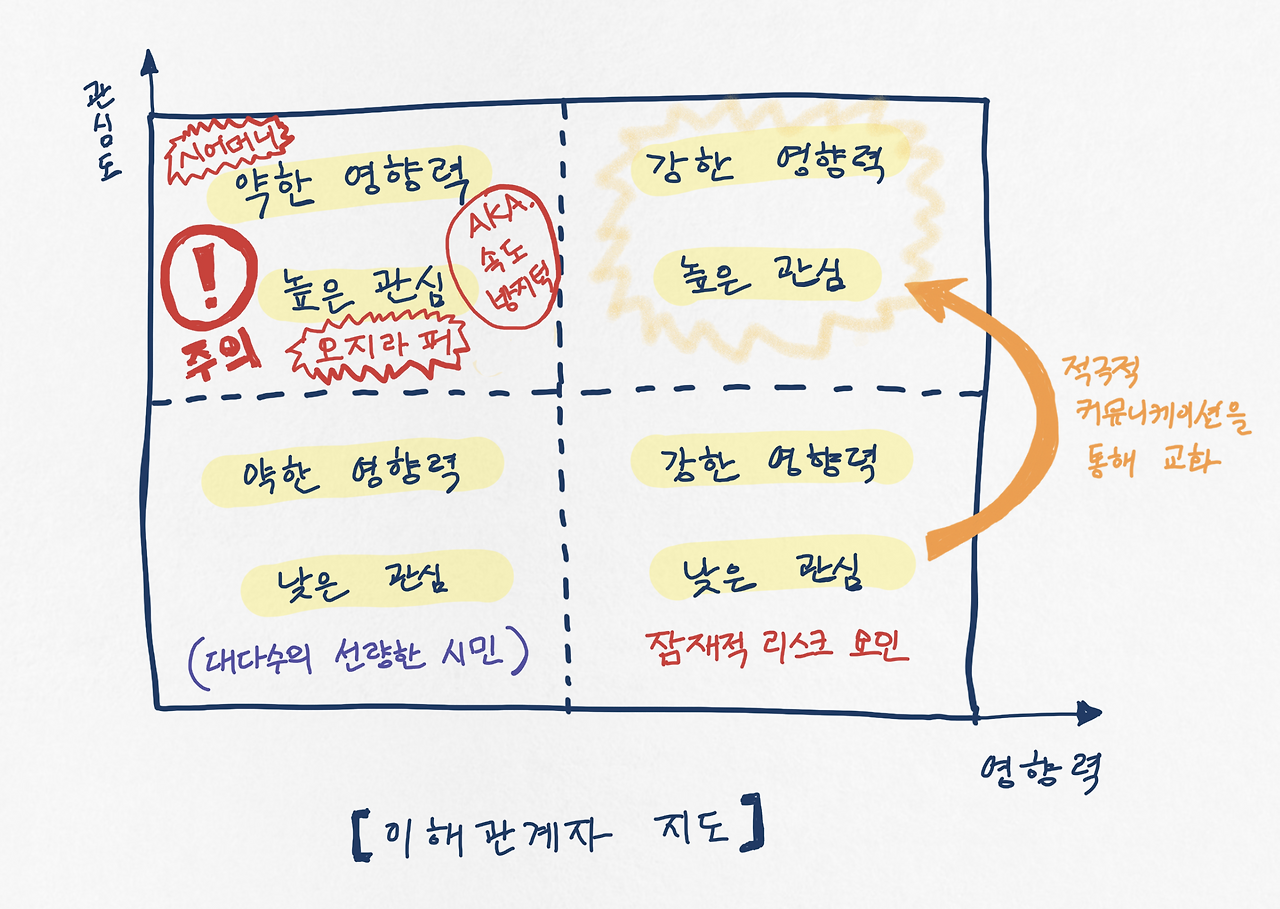 관심도
시어머니
약한 영향력
높은 관심
!
주의
오지라퍼
AKA.
속도
방지턱
강한 영향력
높은 관심
적극적
커뮤니케이션을
통해 교화
약한 영향력
낮은 관심
(대다수의 선량한 시민)
강한 영향력
낮은 관심
잠재적 리스크 요인
영향력
[이해관계자 지도]